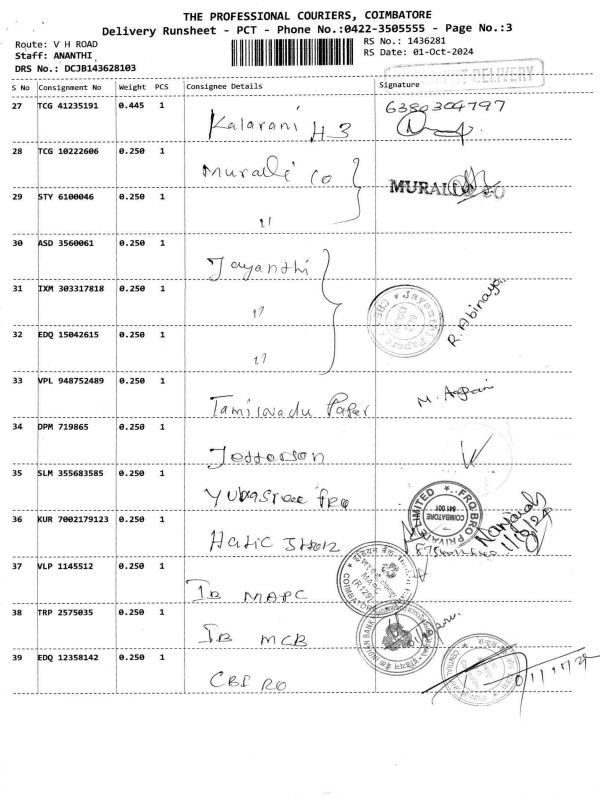 THE PROFESSIONAL COURIERS, COIMBATORE
Delivery Runsheet - PCT - Phone No.:0422-3505555 - Page No.:3
Route: V H ROAD
Staff: ANANTHI
DRS No.: DCJB143628103
RS No.: 1436281
RS Date: 01-Oct-2024
DELIVERY
S No Consignment No Weight PCS Consignee Details Signature
27 TCG 41235191 0.445 1 Kalarani H3 6380304797
28 TCG 10222606 0.250 1 Muralli Co
MURALLI CO
29 STY 6100046 0.250 1 "
30 ASD 3560061 0.250 1 Jayanthi
31 IXM 303317818 0.250 1 " Jayanthi Papers CBE R. Abinaya
32 EDQ 15042615 0.250 1 "
33 VPL 948752489 0.250 1 Tamilnadu Paper M.
34 DPM 719865 0.250 1 Jefferson
35 SLM 355683585 0.250 1
FRQ BRO PRIVATE LIMITED COIMBATORE 641 001
36 KUR 7002179123 0.250 1 1/10/24
37 VLP 1145512 0.250 1 IB MAPC
COIMBATORE
38 TRP 2575035 0.250 1 IB MCB
INDIAN BANK
39 EDQ 12358142 0.250 1 CBI RO